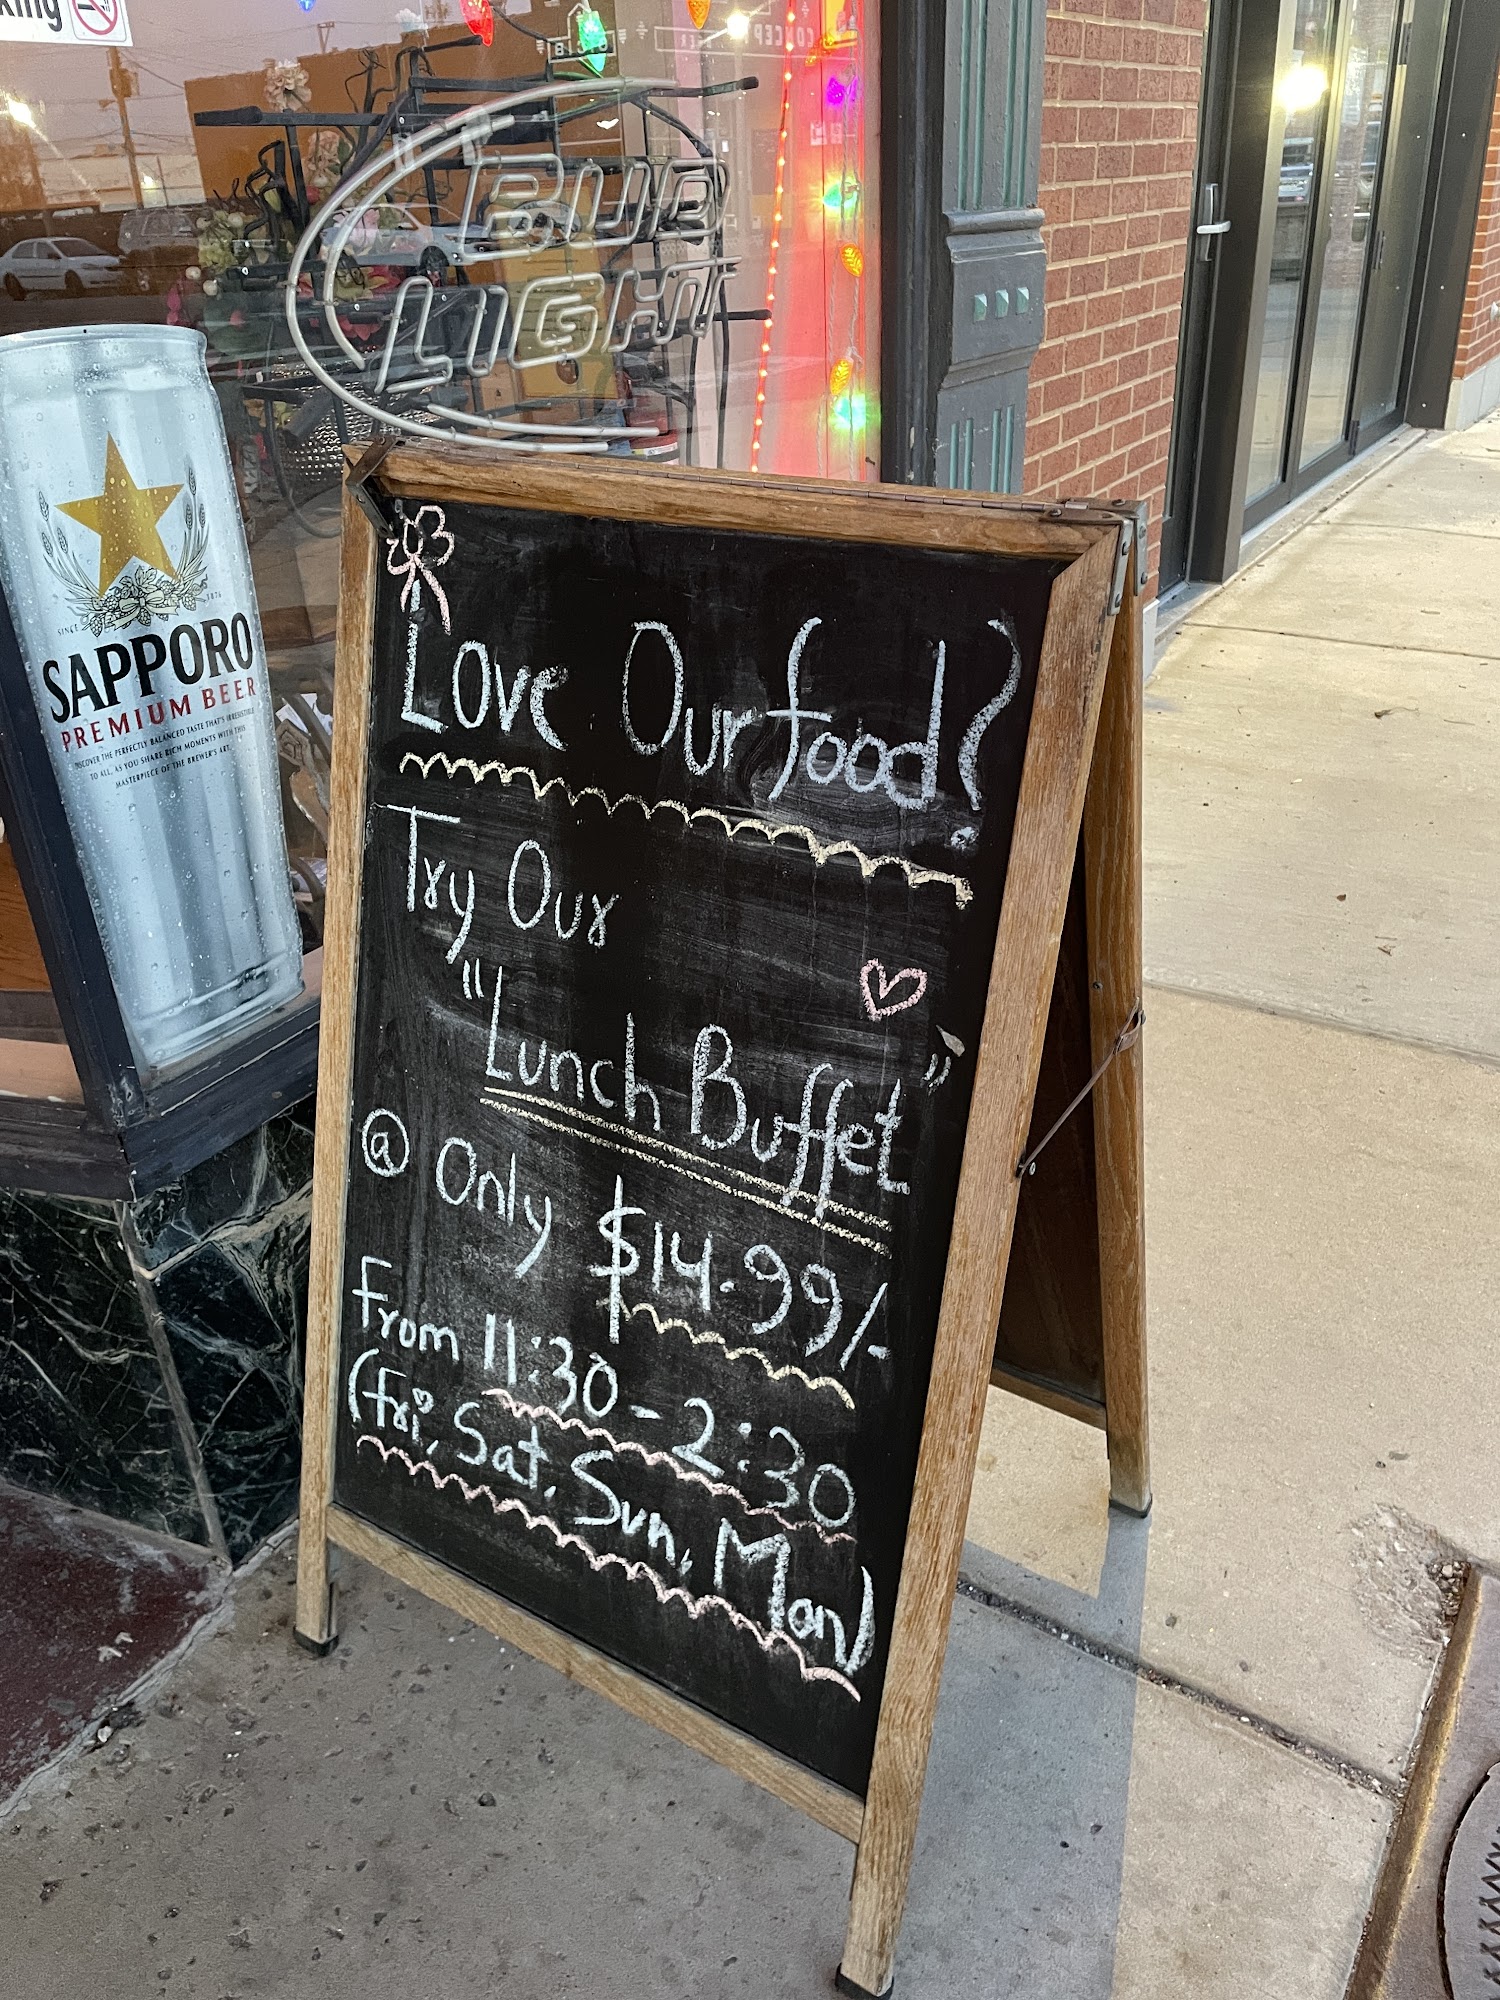 king
BUD
LIGHT
SINCE 1876
SAPPORO
PREMIUM BEER
DISCOVER THE PERFECTLY BALANCED TASTE THAT'S IRRESISTIBLE
TO ALL, AS YOU SHARE RICH MOMENTS WITH THIS
MASTERPIECE OF THE BREWER'S ART.
Love Our food?
Try Our
"Lunch Buffet"
@ Only $14.99/-
From 11:30 - 2:30
(Fri, Sat, Sun, Mon)